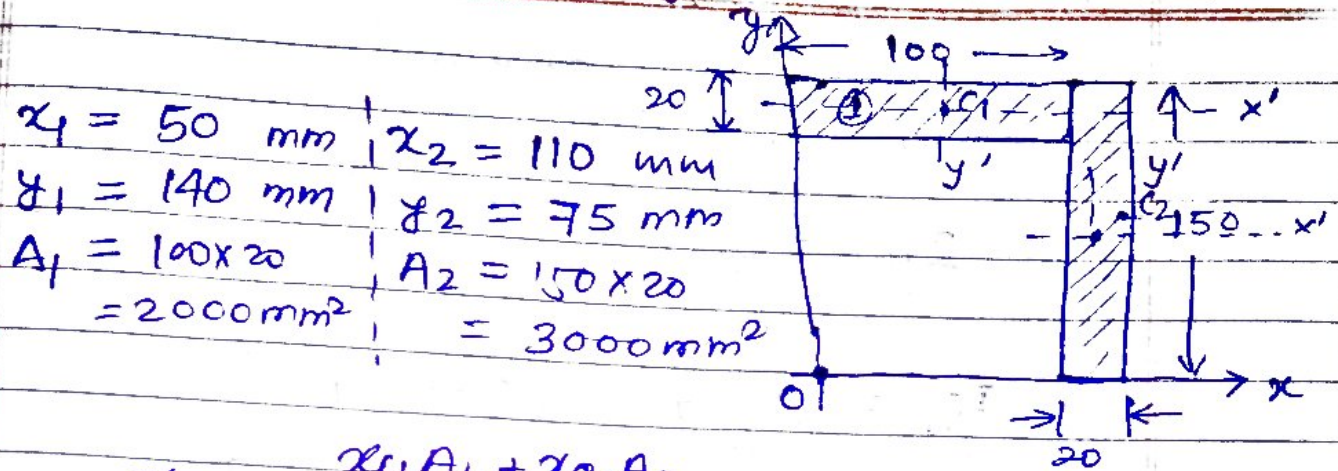 x₁ = 50 mm
y₁ = 140 mm
A₁ = 100 x 20
= 2000 mm²
x₂ = 110 mm
y₂ = 75 mm
A₂ = 150 x 20
= 3000 mm²
y
100
20
①
C₁
x'
y'
y'
C₂
150
x'
O
x
20
x₁A₁ + x₂A₂